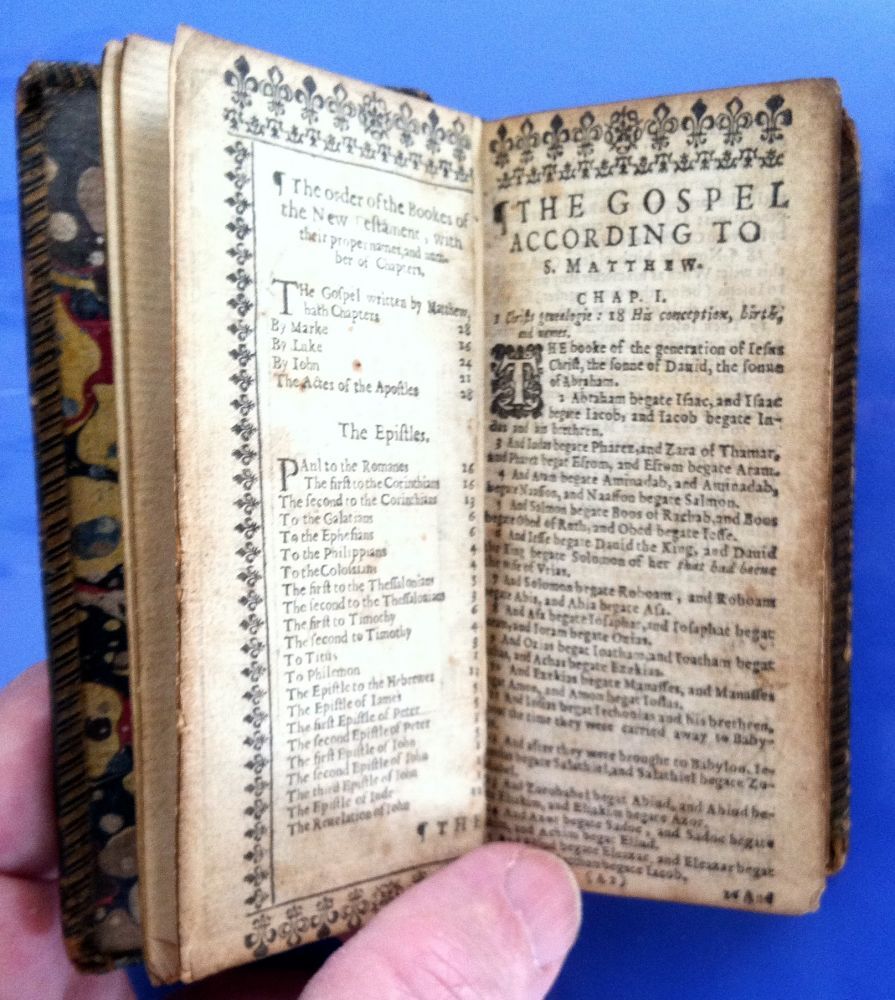 ¶ The order of the Bookes of
the New Testament, with
their proper names, and num-
ber of Chapters.
THe Gospel written by Matthew,
hath Chapters 28
By Marke 16
By Luke 24
By Iohn 21
The Actes of the Apostles 28
The Epiſtles.
PAul to the Romanes 16
The firſt to the Corinthians 16
The ſecond to the Corinthians 13
To the Galatians 6
To the Epheſians 6
To the Philippians 4
To the Coloſsians 4
The firſt to the Theſſalonians 5
The ſecond to the Theſſalonians 3
The firſt to Timothy 6
The ſecond to Timothy 4
To Titus 3
To Philemon 1
The Epiſtle to the Hebrewes 13
The Epiſtle of Iames
The firſt Epiſtle of Peter
The ſecond Epiſtle of Peter
The firſt Epiſtle of Iohn
The ſecond Epiſtle of Iohn
The third Epiſtle of Iohn
The Epiſtle of Iude
The Revelation of Iohn
¶ THE
¶ THE GOSPEL
ACCORDING TO
S. MATTHEW.
CHAP. I.
1 Chriſts genealogie: 18 His conception, birth,
and names.
THE booke of the generation of Ieſus
Chriſt, the ſonne of Dauid, the ſonne
of Abraham.
2 Abraham begate Iſaac, and Iſaac
begate Iacob, and Iacob begate Iu-
das and his brethren.
3 And Iudas begate Pharez, and Zara of Thamar,
and Pharez begat Eſrom, and Eſrom begate Aram.
4 And Aram begate Aminadab, and Aminadab,
begate Naaſſon, and Naaſſon begate Salmon.
5 And Salmon begate Boos of Rachab, and Boos
begate Obed of Ruth, and Obed begate Ieſſe.
6 And Ieſſe begate Dauid the King, and Dauid
the King begate Solomon of her that had beene
the wife of Vrias.
7 And Solomon begate Roboam, and Roboam
begate Abia, and Abia begate Aſa.
8 And Aſa begate Ioſaphat, and Ioſaphat begat
Ioram, and Ioram begate Ozias.
9 And Ozias begat Ioatham, and Ioatham begat
Achas, and Achas begate Ezekias.
And Ezekias begate Manaſſes, and Manaſſes
begat Amon, and Amon begat Ioſias.
And Ioſias begat Iechonias and his brethren,
the time they were carried away to Baby-
And after they were brought to Babylon, Ie-
begate Salathiel, and Salathiel begate Zo-
And Zorobabel begat Abiud, and Abiud be-
Eliakim, and Eliakim begate Azor.
And Azor begate Sadoc, and Sadoc begate
and Achim begat Eliud.
begate Eleazar, and Eleazar begat
begate Iacob.
(A2) 16 And